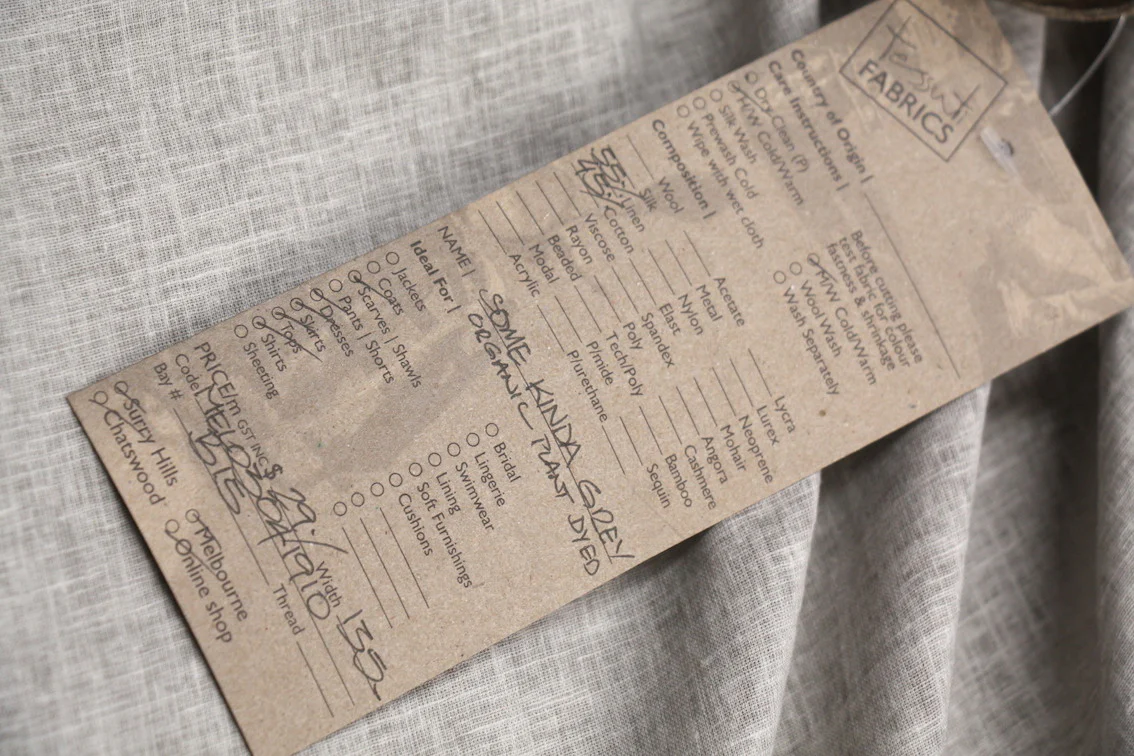 Tessuti
FABRICS
Country of Origin |
Care Instructions |
Dry-Clean (P)
H/W Cold/Warm
Silk Wash
Prewash Cold
Wipe with wet cloth
Before cutting please
test fabric for colour
fastness & shrinkage
M/W Cold/Warm
Wool Wash
Wash Separately
Composition |
Wool
Silk
55% Linen
45% Cotton
Viscose
Rayon
Beaded
Modal
Acrylic
Acetate
Metal
Nylon
Elast
Spandex
Poly
Tech/Poly
P/mide
P/urethane
Lycra
Lurex
Neoprene
Mohair
Angora
Cashmere
Bamboo
Sequin
NAME | SOME KINDA GREY
ORGANIC PLANT DYED
Ideal For |
Jackets
Coats
Scarves | Shawls
Pants | Shorts
Dresses
Skirts
Tops
Shirts
Sheeting
Bridal
Lingerie
Swimwear
Lining
Soft Furnishings
Cushions
PRICE/m GST INC $ 29.- Width 135
Code
Bay #
Thread
Surry Hills
Chatswood
Melbourne
Online shop